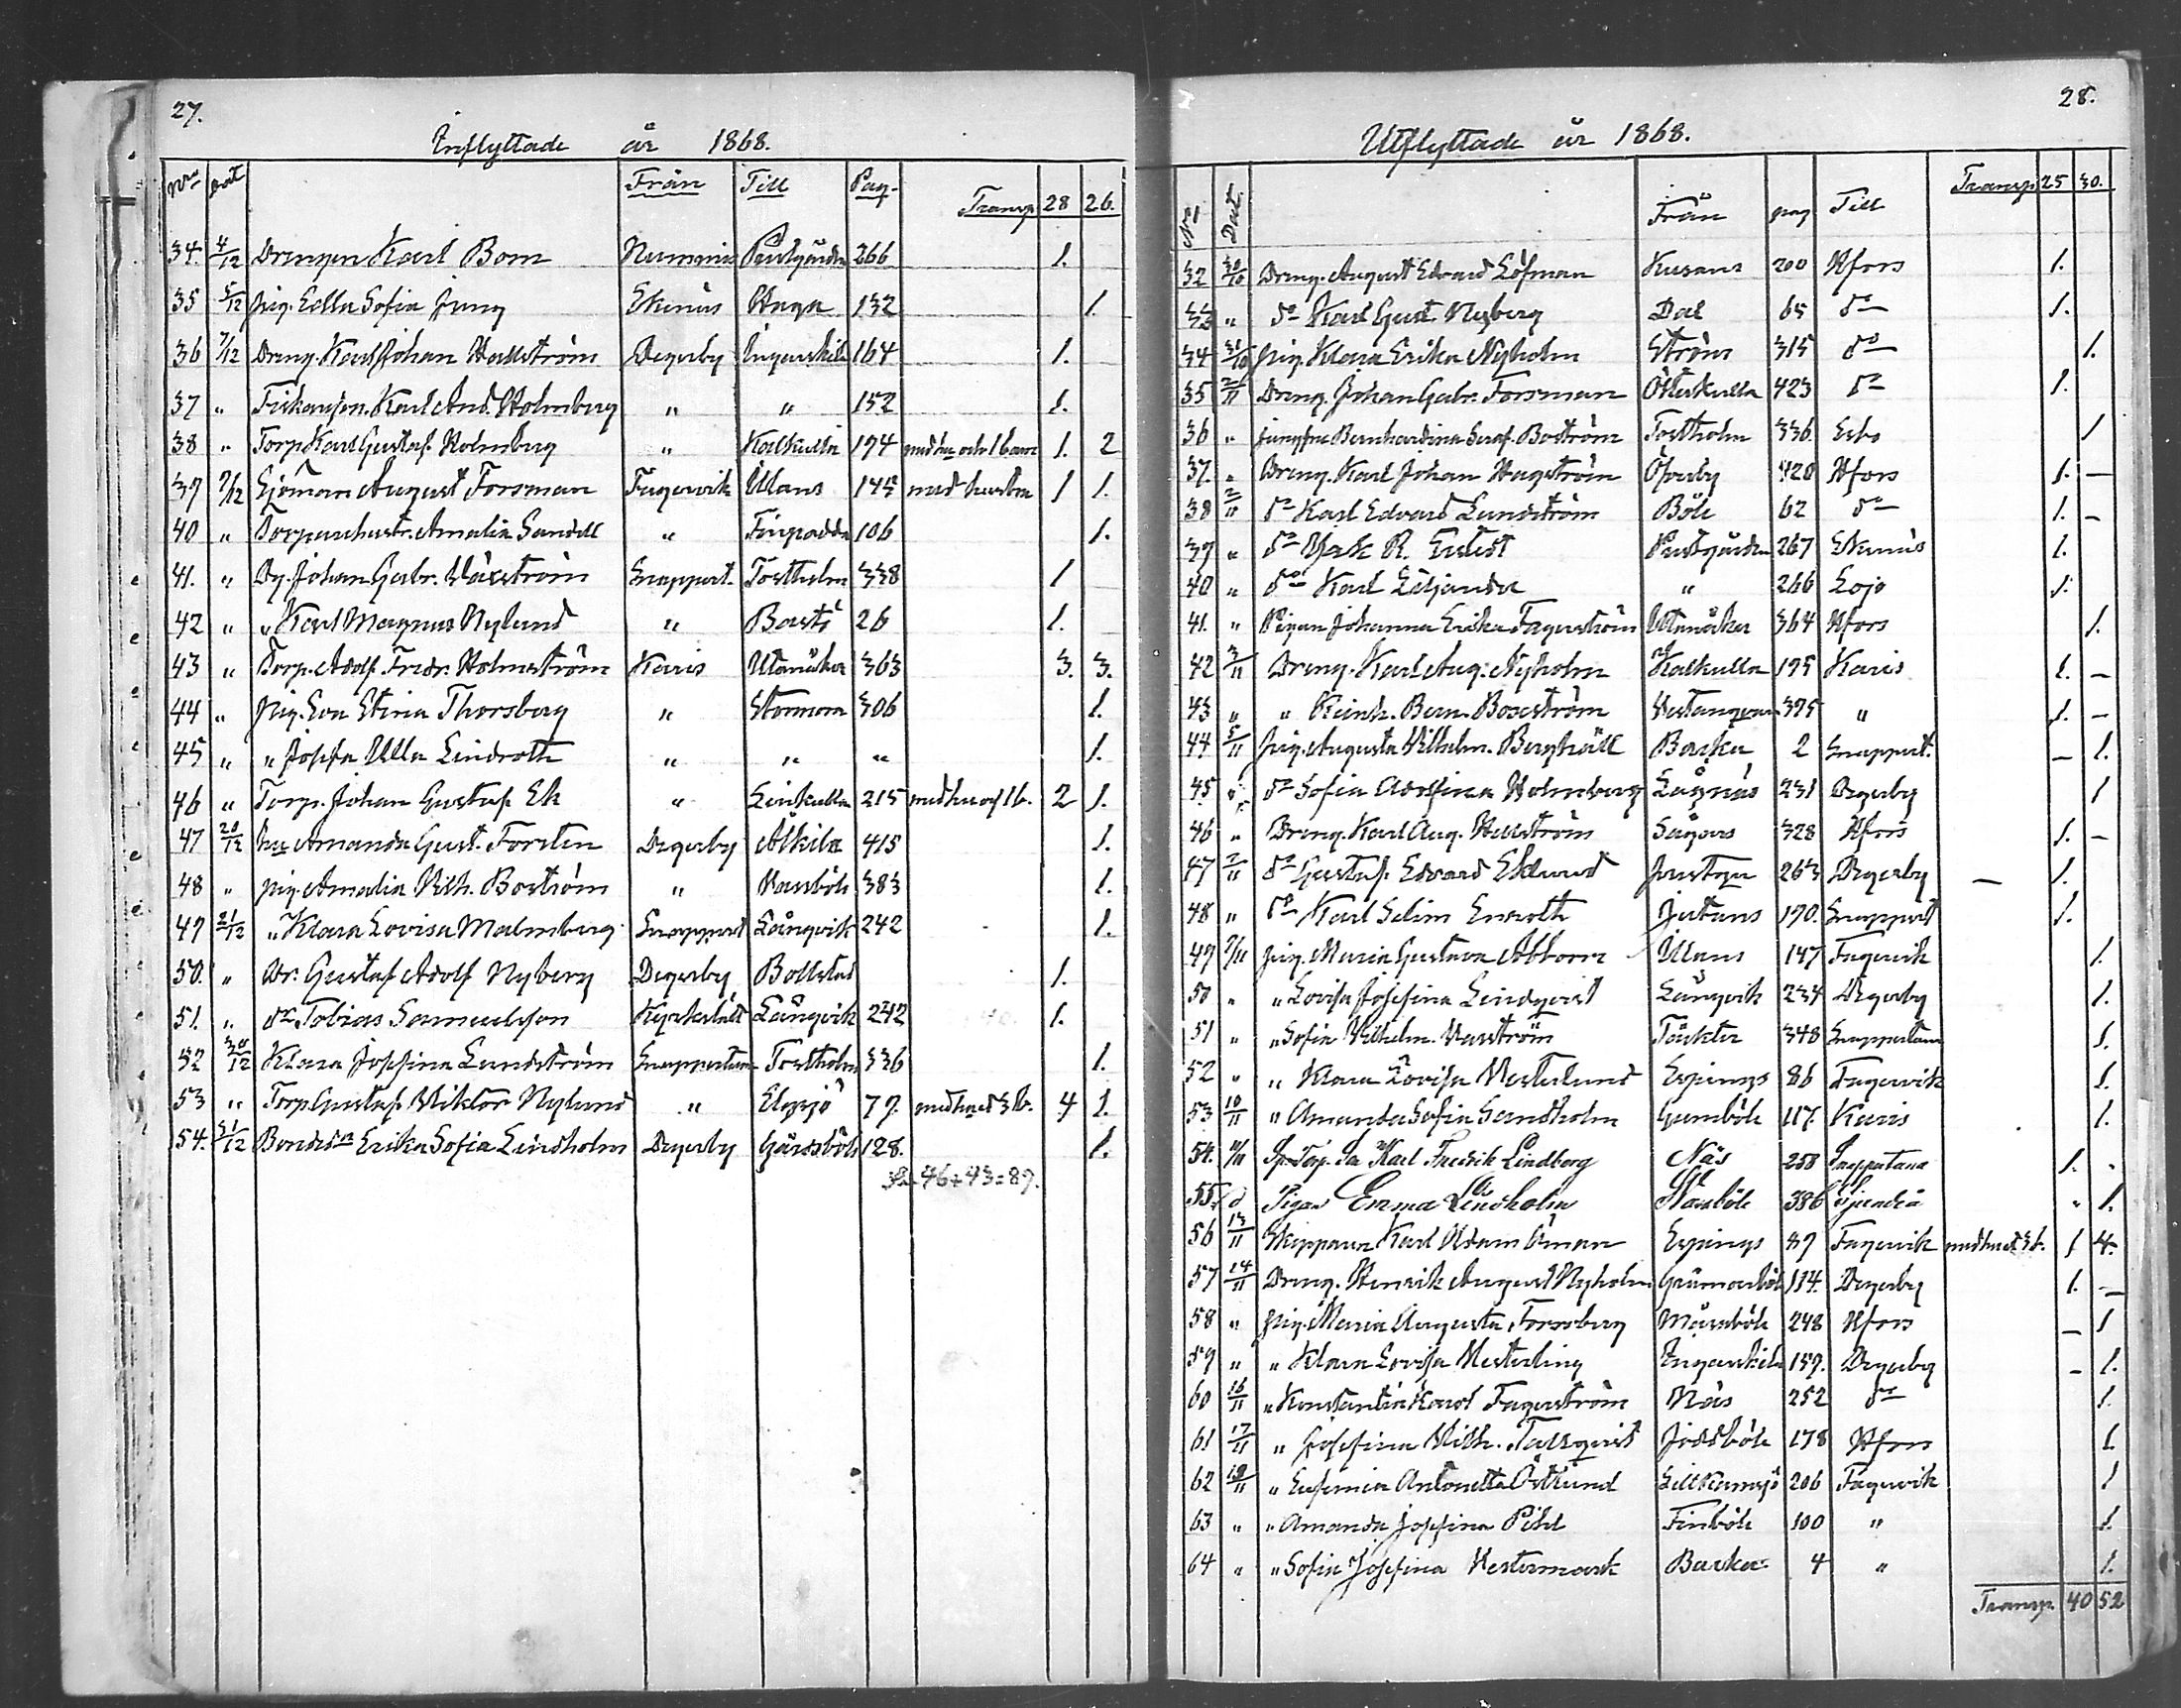 27.
Inflyttade år 1868.
Nro dat Från Till Pag. Transp 28 26.
34. 4/12 Drengen Karl Bom Nummis Prestgården 266 1.
35 5/12 Pig. Edla Sofia Jung Ekenäs Haga 132 1.
36 7/12 Dreng. Karl Johan Hallström Degerby Ingarskila 164 1.
37 " Fiskaren Karl And. Holmberg " " 152 1.
38 " Torp Karl Gustaf Holmberg " Kalkulla 194 med hu och 1 barn 1. 2
39 9/12 Sjöman August Forsman Fagervik Ulans 142 med hustru 1 1.
40 " Torparehustr. Amalia Sandell " Finpadda 106 1.
41. " Dg. Johan Gabr. Växström Snappert. Tostholm 338 1
42 " " Karl Magnus Nylund " Bastö 26 1.
43 " Torp. Adolf Fredr. Holmström Karis Utanåker 363 3. 3.
44 " Pig. Eva Stina Thorsberg " Stormora 306 1.
45 " " Josefa Ulla Lindroth " " " 1.
46 " Torp. Johan Gustaf Ek " Linkulla 215 med hu och 1 b. 2 1.
47 20/12 hu Amanda Gust. Forsten Degerby Älkila 415 1.
48 " pig. Amalia Vilh. Boström " Vassböle 383 1.
49 21/12 " Klara Lovisa Malmberg Snappert Långvik 242 1.
50. " Dr. Gustaf Adolf Nyberg Degerby Bollstad 1.
51. " do Tobias Samuelsson Kyrkslätt Långvik 242 1.
52 30/12 Klara Josefina Lundström Snappertuna Tostholm 336 1.
53 " Torp Gustaf Viktor Nylund " Elgsjö 79. med hu och 3 b. 4 1.
54. 31/12 Bondeda Erika Sofia Lindholm Degerby Gårdsböle 128. 1.
Sa 46+43=89.
28.
Utflyttade år 1868.
No Dat. Från pag Till Transp 25 30.
32 30/10 Dreng. August Edvard Löfman Kusans 200 Hfors 1.
33 " do Karl Gust. Nyberg Dal 65 do 1.
34 31/10 Pig. Klara Erika Nyholm Ström 315 do 1.
35 2/11 Dreng. Johan Gabr. Forsman Ötterkulla 423 do 1.
36 " jungfru Bernhardina Seraf. Boström Tostholm 336. Esbo 1
37. " Dreng. Karl Johan Hagström Öfverby 420 Hfors 1. —
38 2/11 do Karl Edvard Lundström Böle 62 do 1. —
39 " do R. Prestgården 267 Ekenäs 1.
40 " do Karl Liljander " 266 Lojo 1.
41. " Pigan Johanna Erika Fagerström Utanåker 364 Hfors 1.
42 3/11 Dreng. Karl Aug. Nyholm Kalkulla 195 Karis 1. —
43 " " Reinh. Bern. Boxström Vestanqvarn 375 " 1. —
44 5/11 Pig. Augusta Vilhelm. Berghäll Barka 2 Snappert. — 1.
45 " do Sofia Adolfina Holmberg Lågnäs 231 Degerby 1
46 " Dreng. Karl Aug. Hallström Sågars 328 Hfors 1. —
47 7/11 do Gustaf Edvard Eklund 263 Degerby — 1.
48 " do Karl Selim Enroth Jutans 190. Snappert 1.
49 9/11 pig. Maria Gustava Abborr Ulans 147 Fagervik 1.
50 " " Lovisa Josefina Lindqvist Långvik 234 Degerby 1.
51 " " Sofia Vilhelm. Vasström Täkter 348 Snappertuna 1.
52 " " Klara Lovisa Vesterlund Espings 86 Fagervik 1.
53 10/11 " Amanda Sofia Sandholm Gumböle 117. Karis 1.
54. 11/11 Torp. Karl Fredrik Lindberg Näs 258 Snappertuna 1. "
55 d Pigan Emma Lindholm Vassböle 386 Sjundeå " 1.
56 13/11 Skepparen Karl Adam Öman Espings 89 Fagervik med hu och 3 b. 1 4.
57 14/11 Dreng. Henrik August Nyholm Grämarböle 114. Degerby 1. —
58 " pig. Maria Augusta Forsberg Mårsböle 248 Hfors — 1
59 " " Klara Lovisa Vesterling Ingarskila 159. Degerby — 1.
60 16/11 " Konstantia Karol Fagerström Näs 252 do 1.
61 17/11 " Josefina Vilh. Tallqvist Joddböle 178 Hfors 1.
62 19/11 " Eufemia Antonetta Östlund Lill Ramsjö 206 Fagervik 1
63 " " Amanda Josefina Pihl Finböle 100 " 1.
64 " " Sofia Josefina Vestermark Barka 4 " 1.
Transp. 40 52